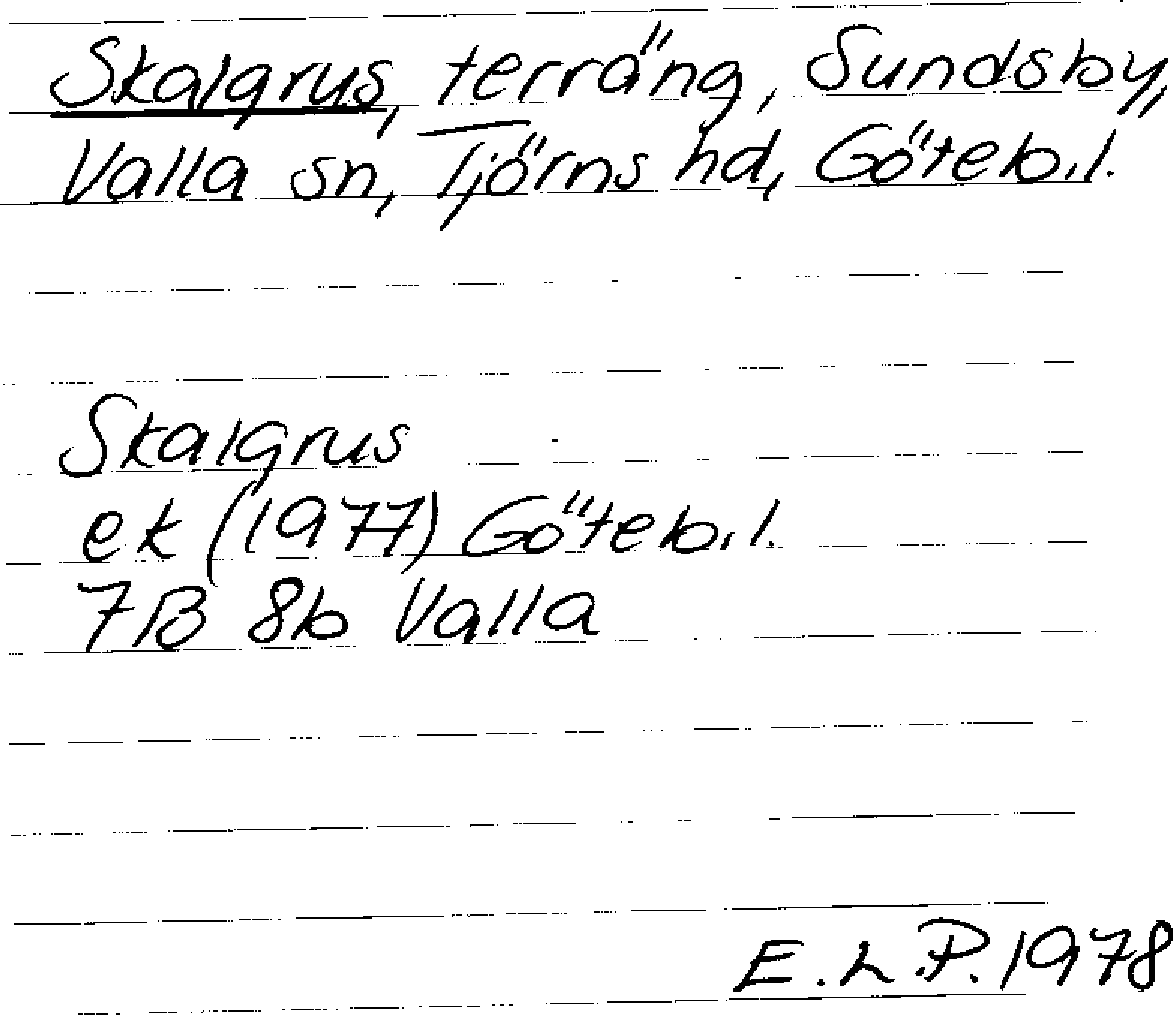 Skalgrus, terräng, Sundsby,
Valla sn, Tjörns hd, Göteb.l.
Skalgrus
ek (1977) Göteb.l.
7B 8b Valla
E.L.P. 1978